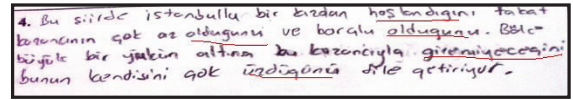 4. Bu şiirde istanbullu bir kızdan hoşlandığını fakat
kazancının çok az olduğunu ve borçlu olduğunu. Böle-
büyük bir yükün altına bu kazancıyla giremiyeceğini
bunun kendisini çok üzdüğünü dile getiriyor.